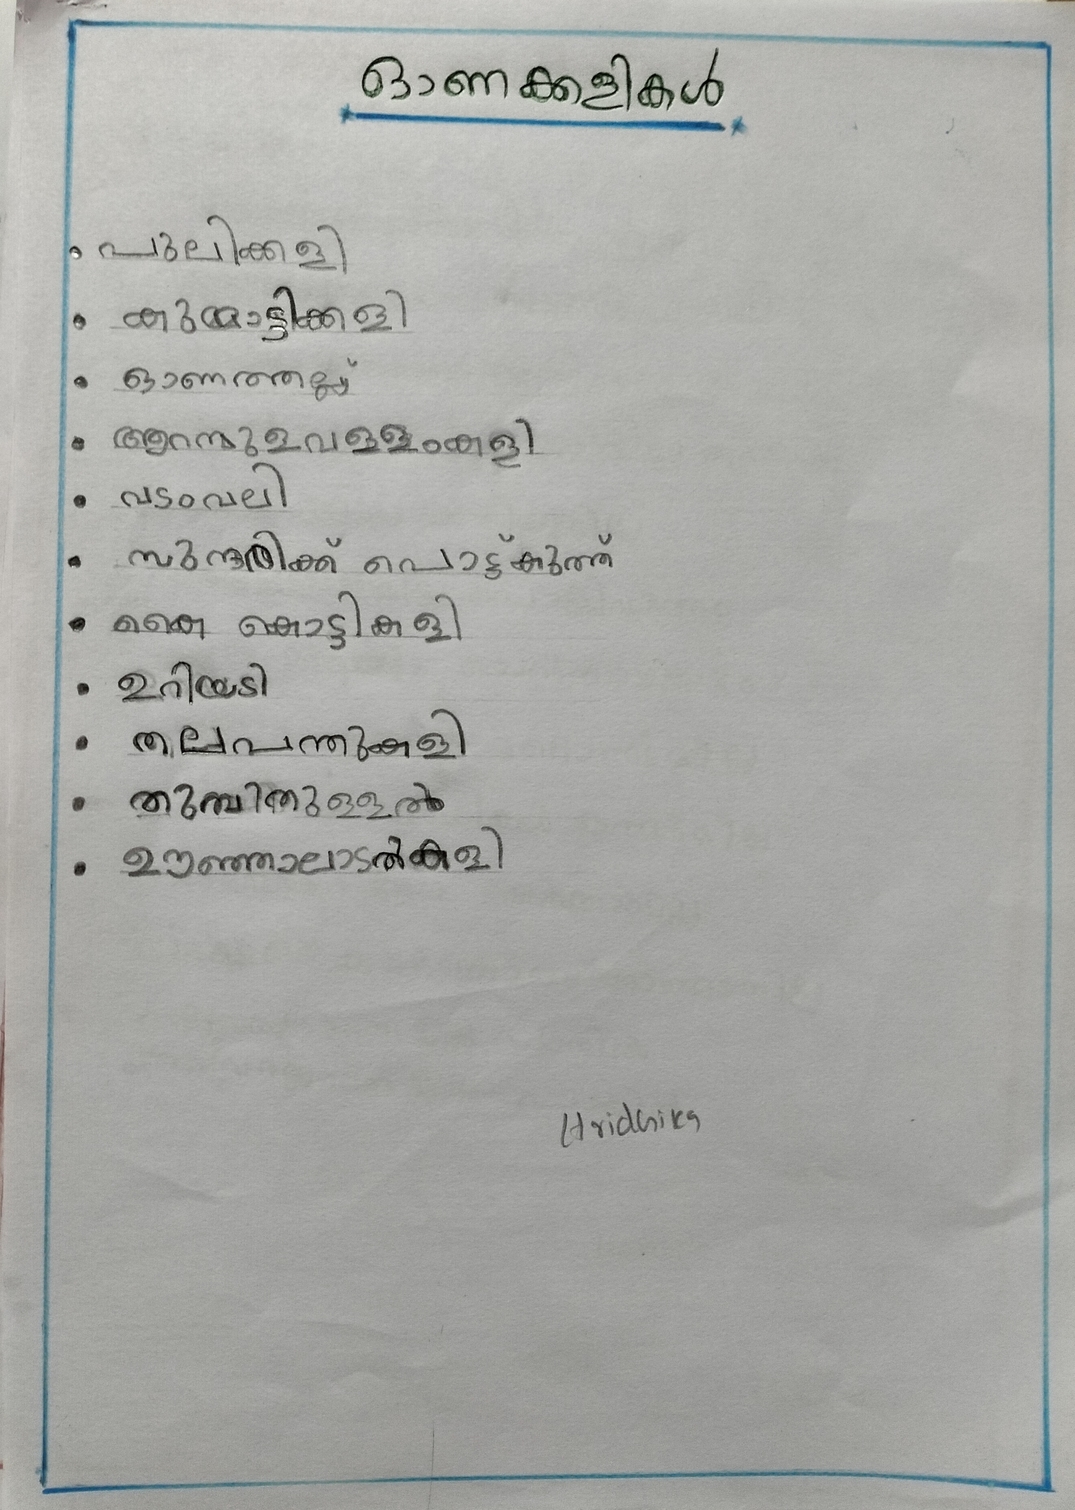 ഓണക്കളികൾ
• പുലിക്കളി
• കുമ്മാട്ടിക്കളി
• ഓണത്തല്ല്
• ആറന്മുളവള്ളംകളി
• വടംവലി
• സുന്ദരിക്ക് പൊട്ട്കുത്ത്
• കൈ കൊട്ടികളി
• ഉറിയടി
• തലപ്പന്തുകളി
• തുമ്പിതുള്ളൽ
• ഊഞ്ഞാലാടൽകളി
Hridhika